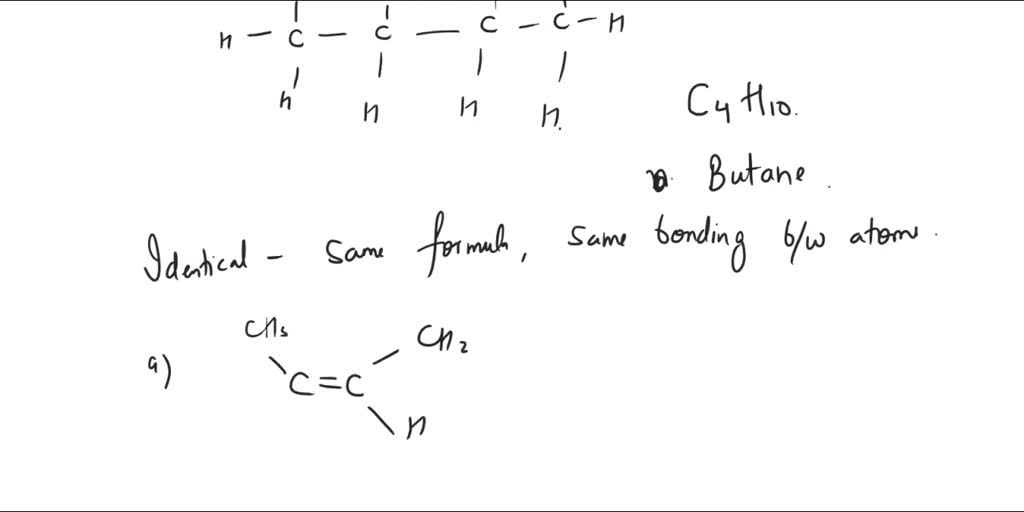 H - C - C - C - C - H
H H H H.
C4H10.
Butane.
Identical - same formula, same bonding b/w atoms.
CH3 CH2
a) C=C
H